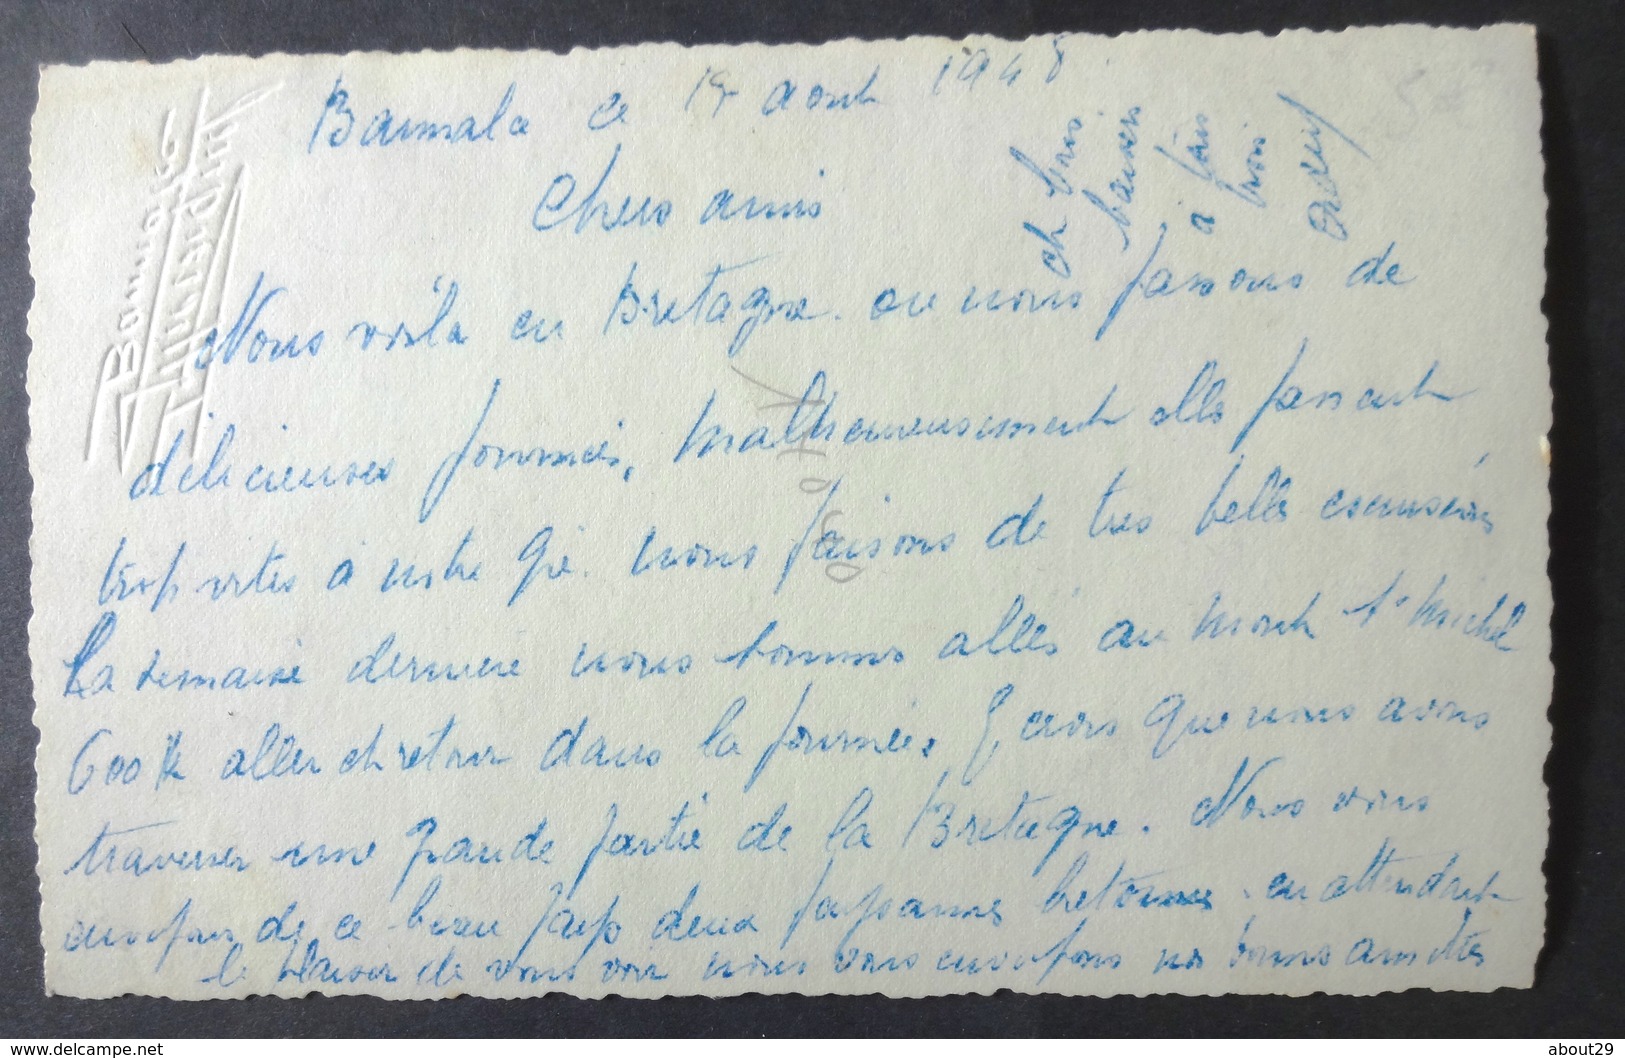 Banmalo ce 17 aout 1948.
Chers amis
Nous voila en Bretagne. ou nous passons de
délicieuses journeés, malheureusement elles passent
trop vites à notre gré. nous faisons de tres belles excursions
La semaine derniere nous sommes allés au mont St Michel
600 K aller et retour dans la journeé, je crois que nous avons
traverser une grande partie de la Bretagne. Nous vous
envoyons de ce beau pays deux paysannes bretonnes. en attendant
le plaisir de vous voir nous vous envoyons nos bonnes amitiés
et gros
baisers
à tous
trois
delcampe.net
about29